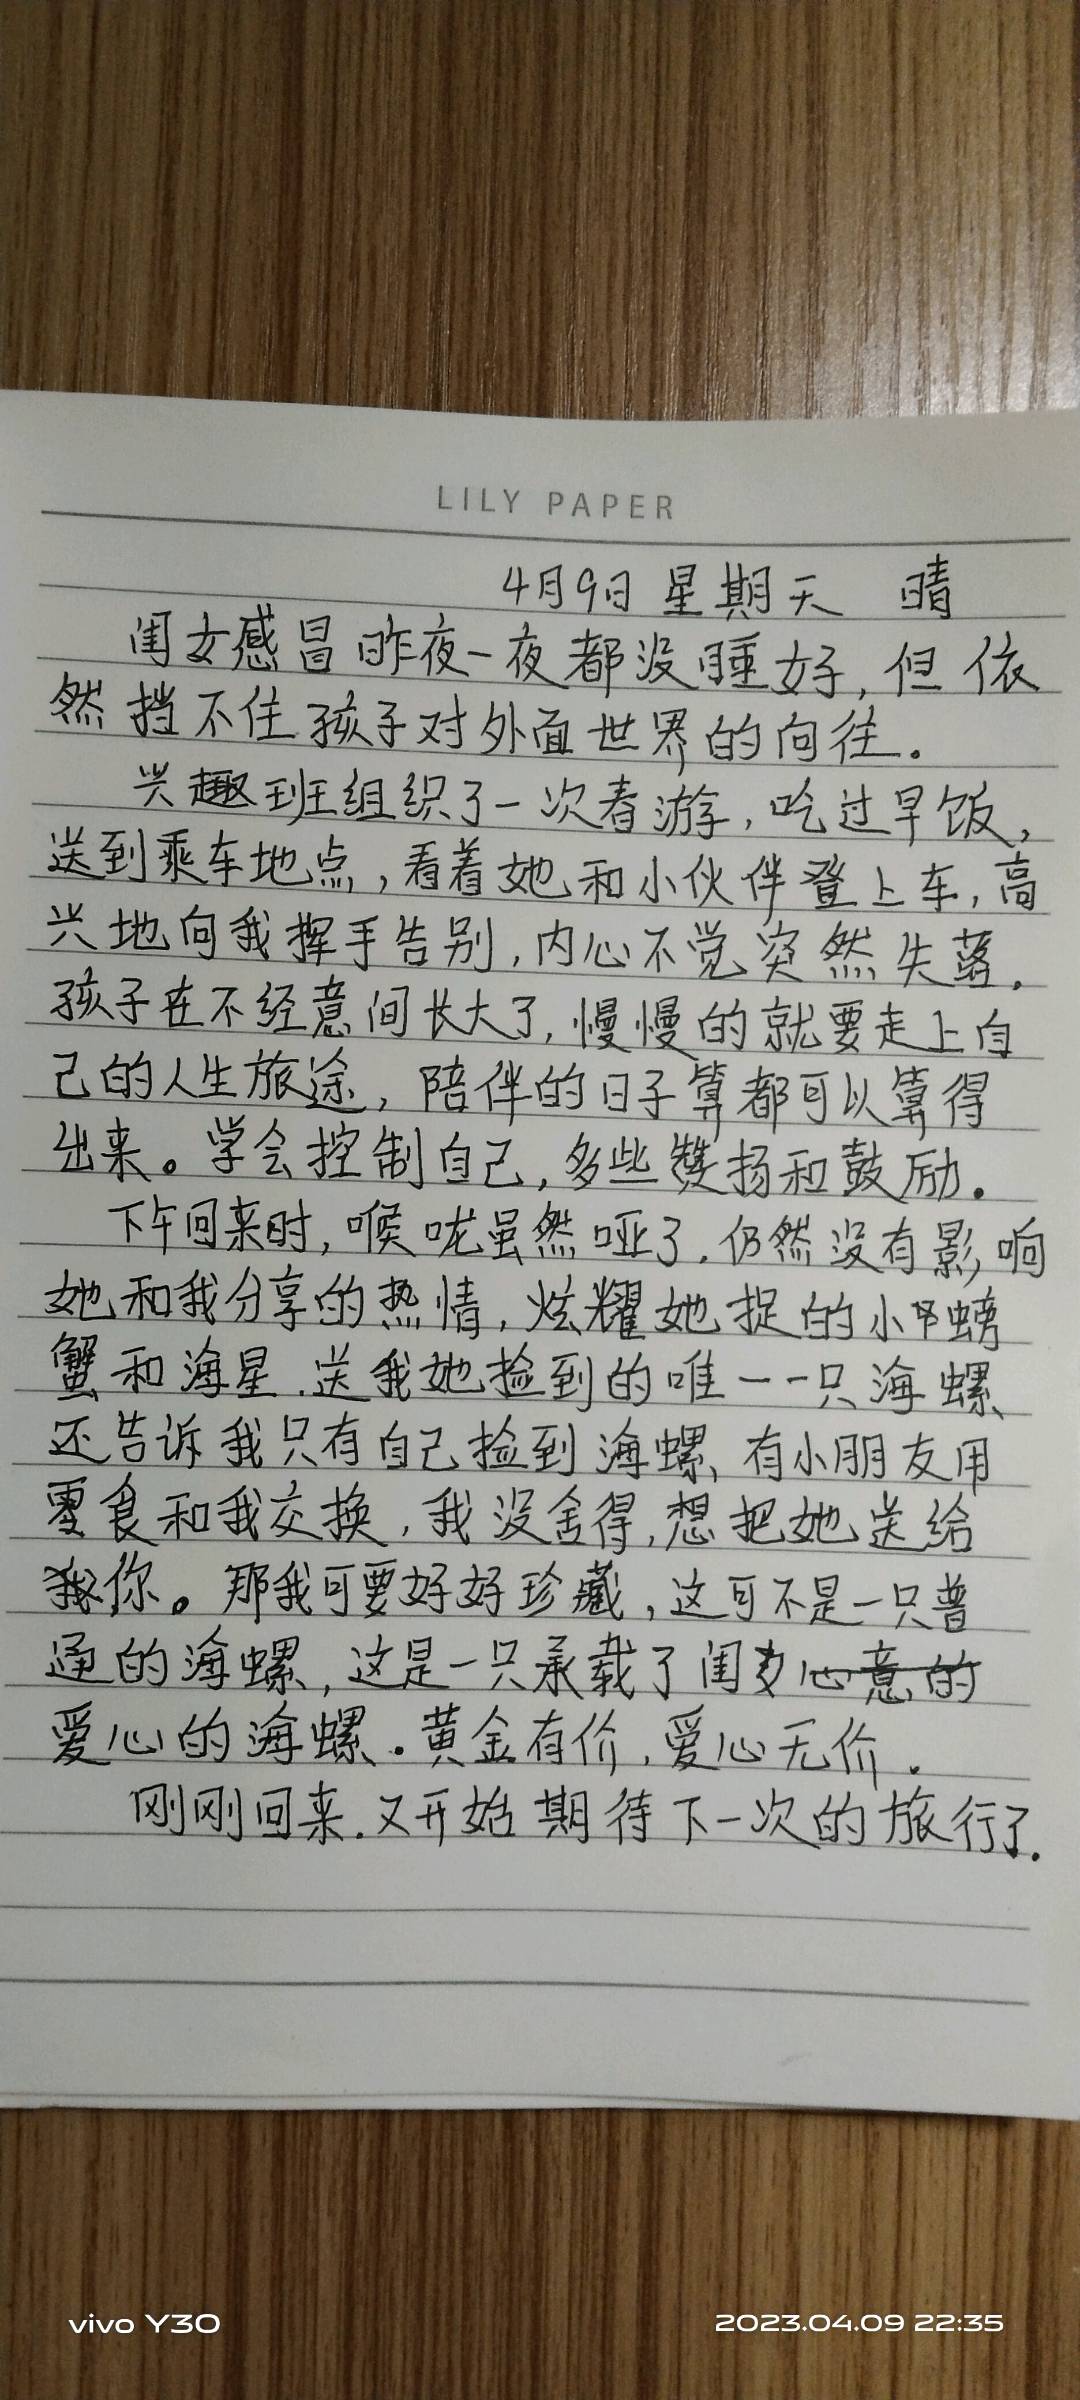 LILY PAPER
4月9日 星期天 晴
闺女感冒昨夜一夜都没睡好,但依
然挡不住孩子对外面世界的向往。
兴趣班组织了一次春游,吃过早饭,
送到乘车地点,看着她和小伙伴登上车,高
兴地向我挥手告别,内心不觉突然失落.
孩子在不经意间长大了,慢慢的就要走上自
己的人生旅途,陪伴的日子算都可以算得
出来。学会控制自己,多些赞扬和鼓励.
下午回来时,喉咙虽然哑了.仍然没有影响
她和我分享的热情,炫耀她捉的小螃
蟹和海星.送我她捡到的唯一一只海螺
还告诉我只有自己捡到海螺,有小朋友用
零食和我交换,我没舍得,想把她送给
你。那我可要好好珍藏,这可不是一只普
通的海螺,这是一只承载了闺女心意的
爱心的海螺.黄金有价,爱心无价.
刚刚回来.又开始期待下一次的旅行了.
vivo Y30
2023.04.09 22:35